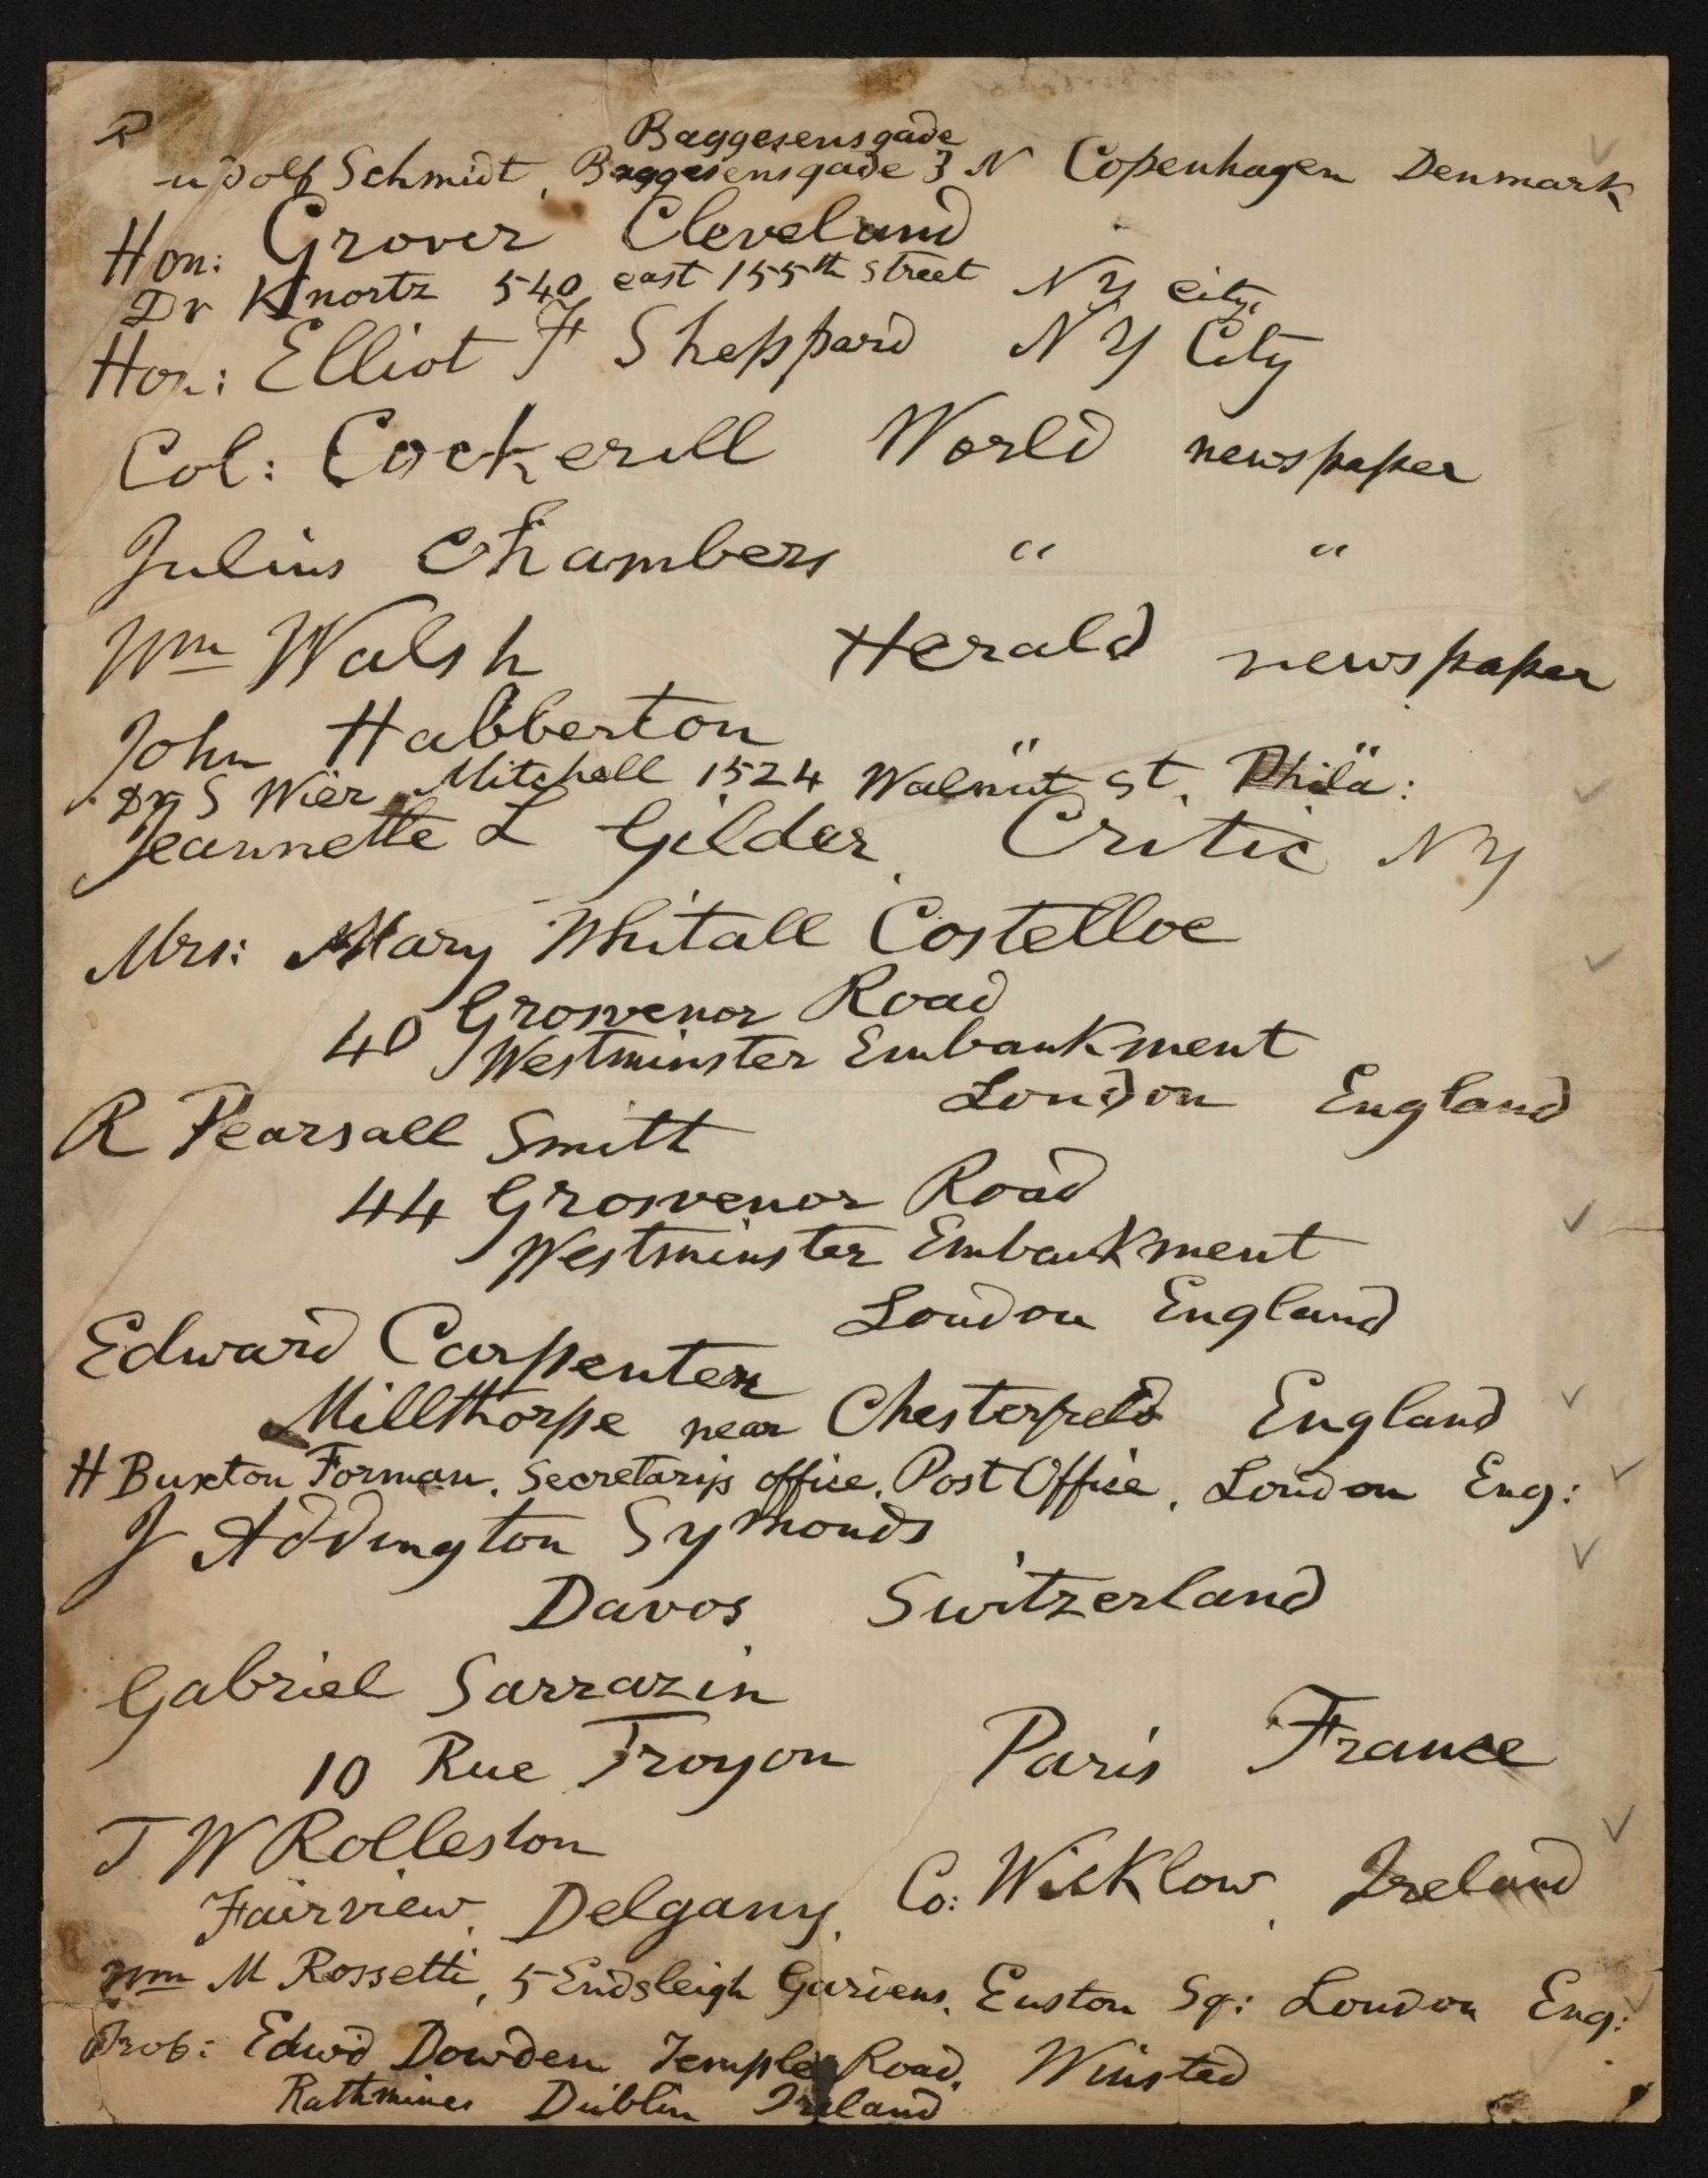 Baggesensgade
Rudolf Schmidt, Baggesensgade 3 N Copenhagen Denmark
Hon: Grover Cleveland
Dr Knortz 540 east 155th street N Y city,
Hon: Elliot F Sheppard N Y City
Col: Cockerill World newspaper
Julius Chambers " "
Wm Walsh Herald newspaper
John Habberton " "
Dr S Wier Mitchell 1524 Walnut st. Phila:
Jeannette L Gilder Critic N Y
Mrs: Mary Whitall Costelloe
40 Grosvenor Road
Westminster Embankment
London England
R Pearsall Smith
44 Grosvenor Road
Westminster Embankment
London England
Edward Carpenter
Millthorpe near Chesterfield England
H Buxton Forman, Secretary's office, Post Office, London Eng:
J Addington Symonds
Davos Switzerland
Gabriel Sarrazin
10 Rue Troyon Paris France
T W Rolleston
Fairview, Delgany, Co: Wicklow, Ireland
Wm M Rossetti, 5 Endsleigh Gardens, Euston Sq: London Eng:
Prof: Edwd Dowden Temple Road, Winsted
Rathmines Dublin Ireland